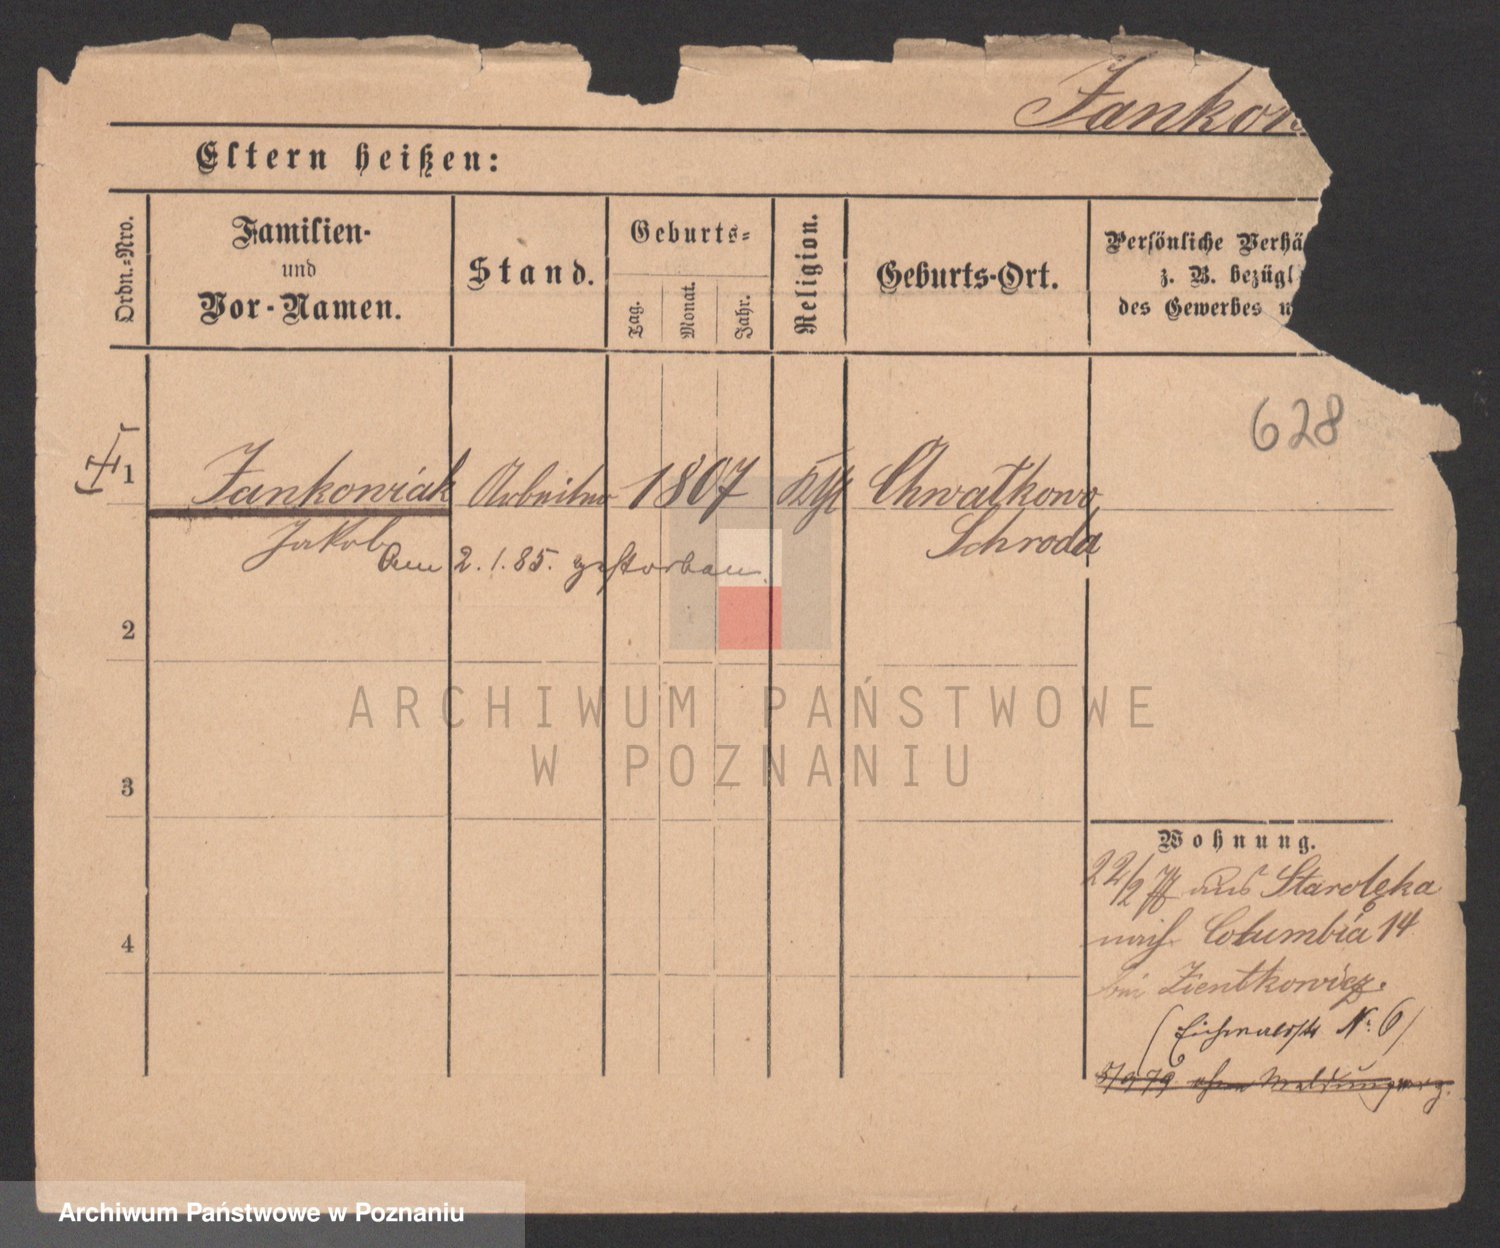 Jankow
Eltern heißen:
Ordn.-Nro.
Familien-
und
Vor-Namen.
Stand.
Geburts-
Tag.
Monat.
Jahr.
Religion.
Geburts-Ort.
Persönliche Verhä
z. B. bezügl
des Gewerbes u
628
1 Jankowiak Arbeiter 1807 Kth Chwałkowo
Jakob Schroda
am 2.1.85. gestorben.
2
3
4
Wohnung.
22/2 77 aus Starolęka
nach Columbia 14
bei Zientkowicz.
(Eichwaldstr N: 6)
5/9 79 ohne Meldung weg.
ARCHIWUM PAŃSTWOWE
W POZNANIU
Archiwum Państwowe w Poznaniu